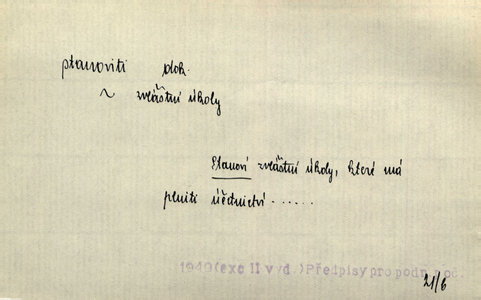 stanoviti dok.
~ zvláštní úkoly
Stanoví zvláštní úkoly, které má
plniti účetnictví ......
1949 (exc II vyd.) Předpisy pro podn. poč.
21/6